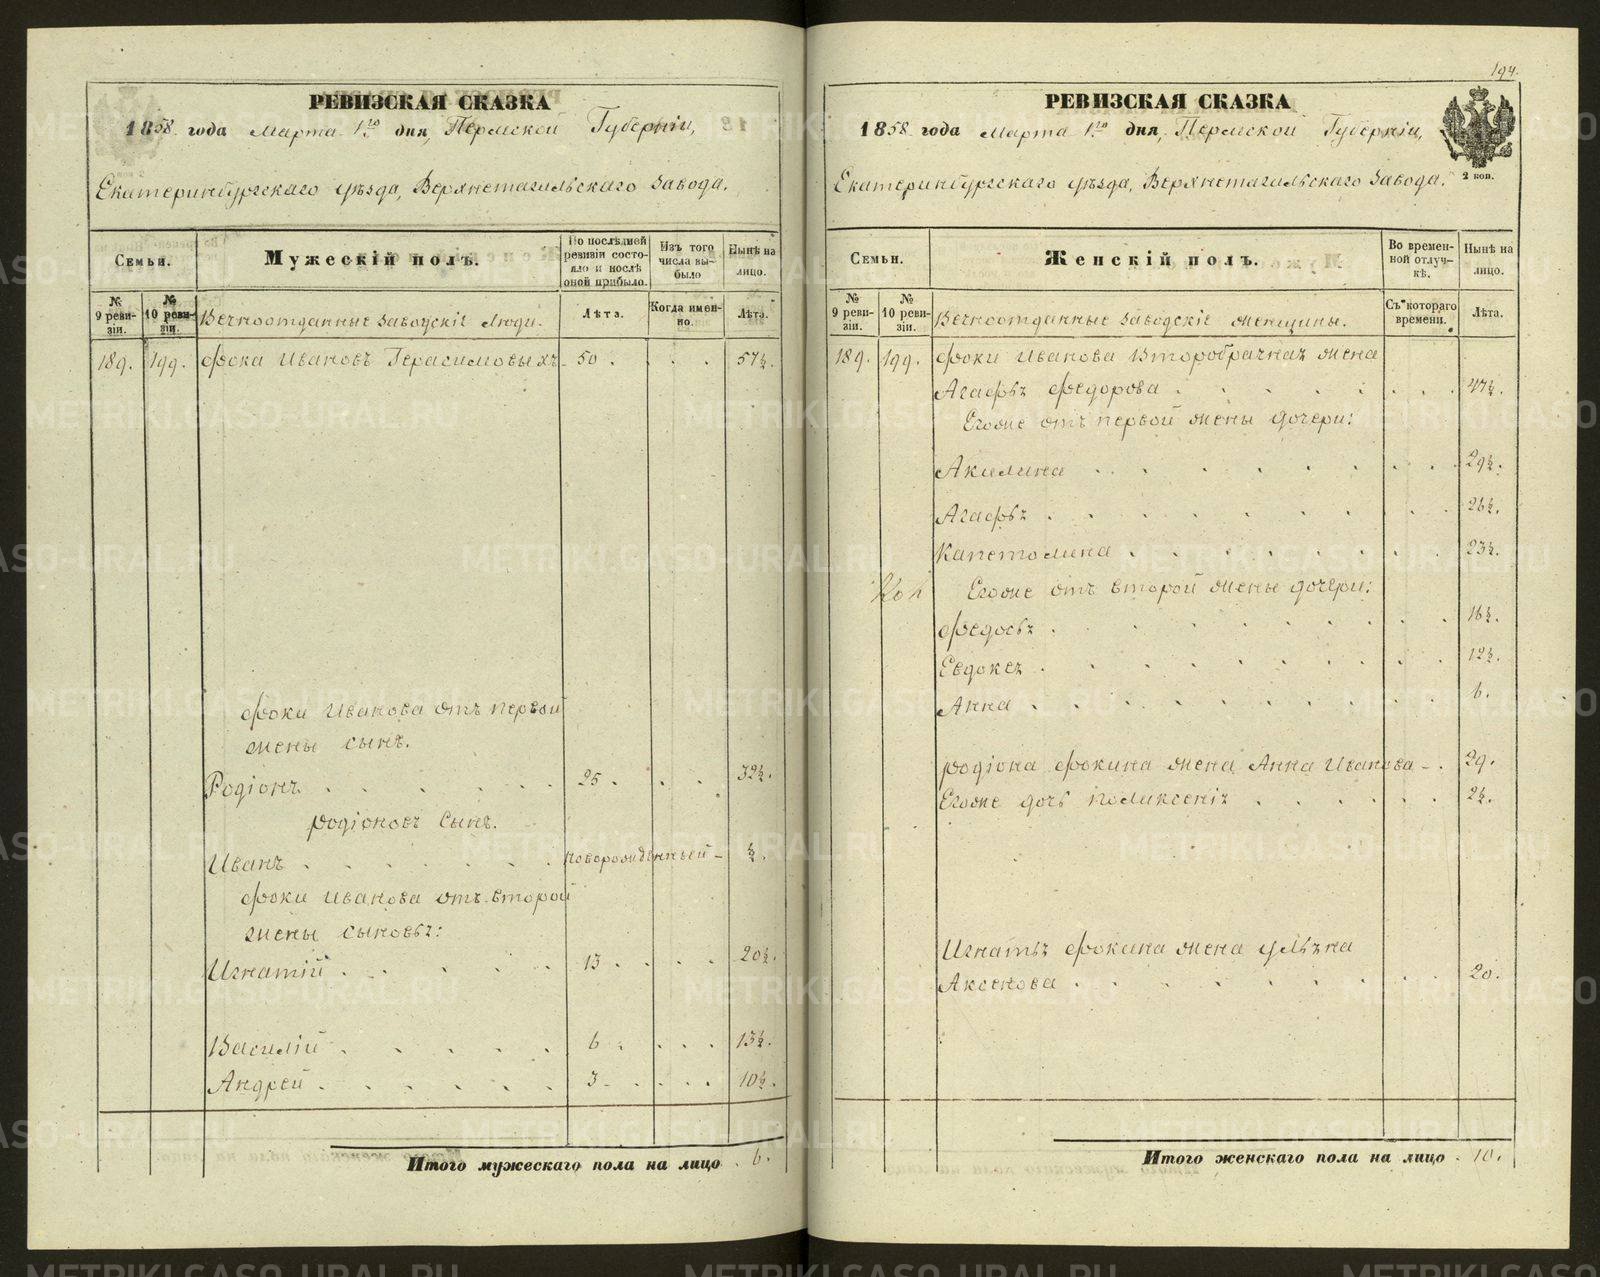 РЕВИЗСКАЯ СКАЗКА
1858 года Марта 1го дня, Пермской Губернiи,
Екатеринбургскаго уѣзда, Верхнетагильскаго Завода.
Семьи.
Мужескiй полъ.
По послѣдней ревизiи состояло и послѣ оной прибыло.
Изъ того числа выбыло
Нынѣ на лицо.
№ 9 ревизiи.
№ 10 ревизiи.
Вечноотданные Заводскiе Люди.
Лѣта.
Когда именно.
Лѣта.
189. 199. Фока Ивановъ Герасимовыхъ 50 57½.
Фоки Иванова отъ первой
жены сынъ.
Родiонъ 25. 32½.
Родiоновъ сынъ.
Иванъ новорожденный - ½.
Фоки Иванова отъ второй
жены сыновья:
Игнатiй 13. 20½.
Василiй 6. 13½.
Андрей 3. 10½.
Итого мужескаго пола на лицо 6.
194.
РЕВИЗСКАЯ СКАЗКА
1858 года Марта 1го дня, Пермской Губернiи,
Екатеринбургскаго уѣзда, Верхнетагильскаго Завода.
2 коп.
Семьи.
Женскiй полъ.
Во временной отлучкѣ.
Нынѣ на лицо.
№ 9 ревизiи.
№ 10 ревизiи.
Вечноотданные Заводскiе женщины.
Съ котораго времени.
Лѣта.
189. 199. Фоки Иванова Второбрачная жена
Агафья Федорова 47½.
Егоже отъ первой жены дочери:
Акилина 29½.
Агафья 26½.
Капетолина 23½.
Егоже отъ второй жены дочери:
Федосья 16½.
Евдокея 12½.
Анна 6.
Родiона Фокина жена Анна Иванова - 29.
Егоже дочь Поликсенiя 2½.
Игнатья Фокина жена Ульяна
Аксенова 20.
Итого женскаго пола на лицо 10.
METRIKI.GASO-URAL.RU